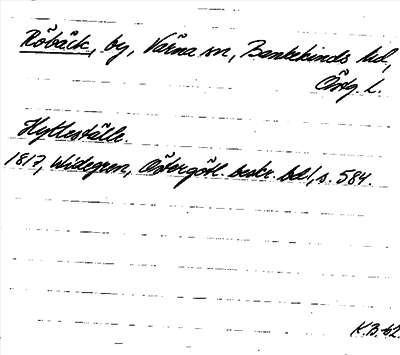 Röbäck, by, Värna sn, Bankekinds hd,
Östg. l.
Hytteställe.
1817, Widegren, Östergötl. beskr. bd I, s. 584.
K.B-62.